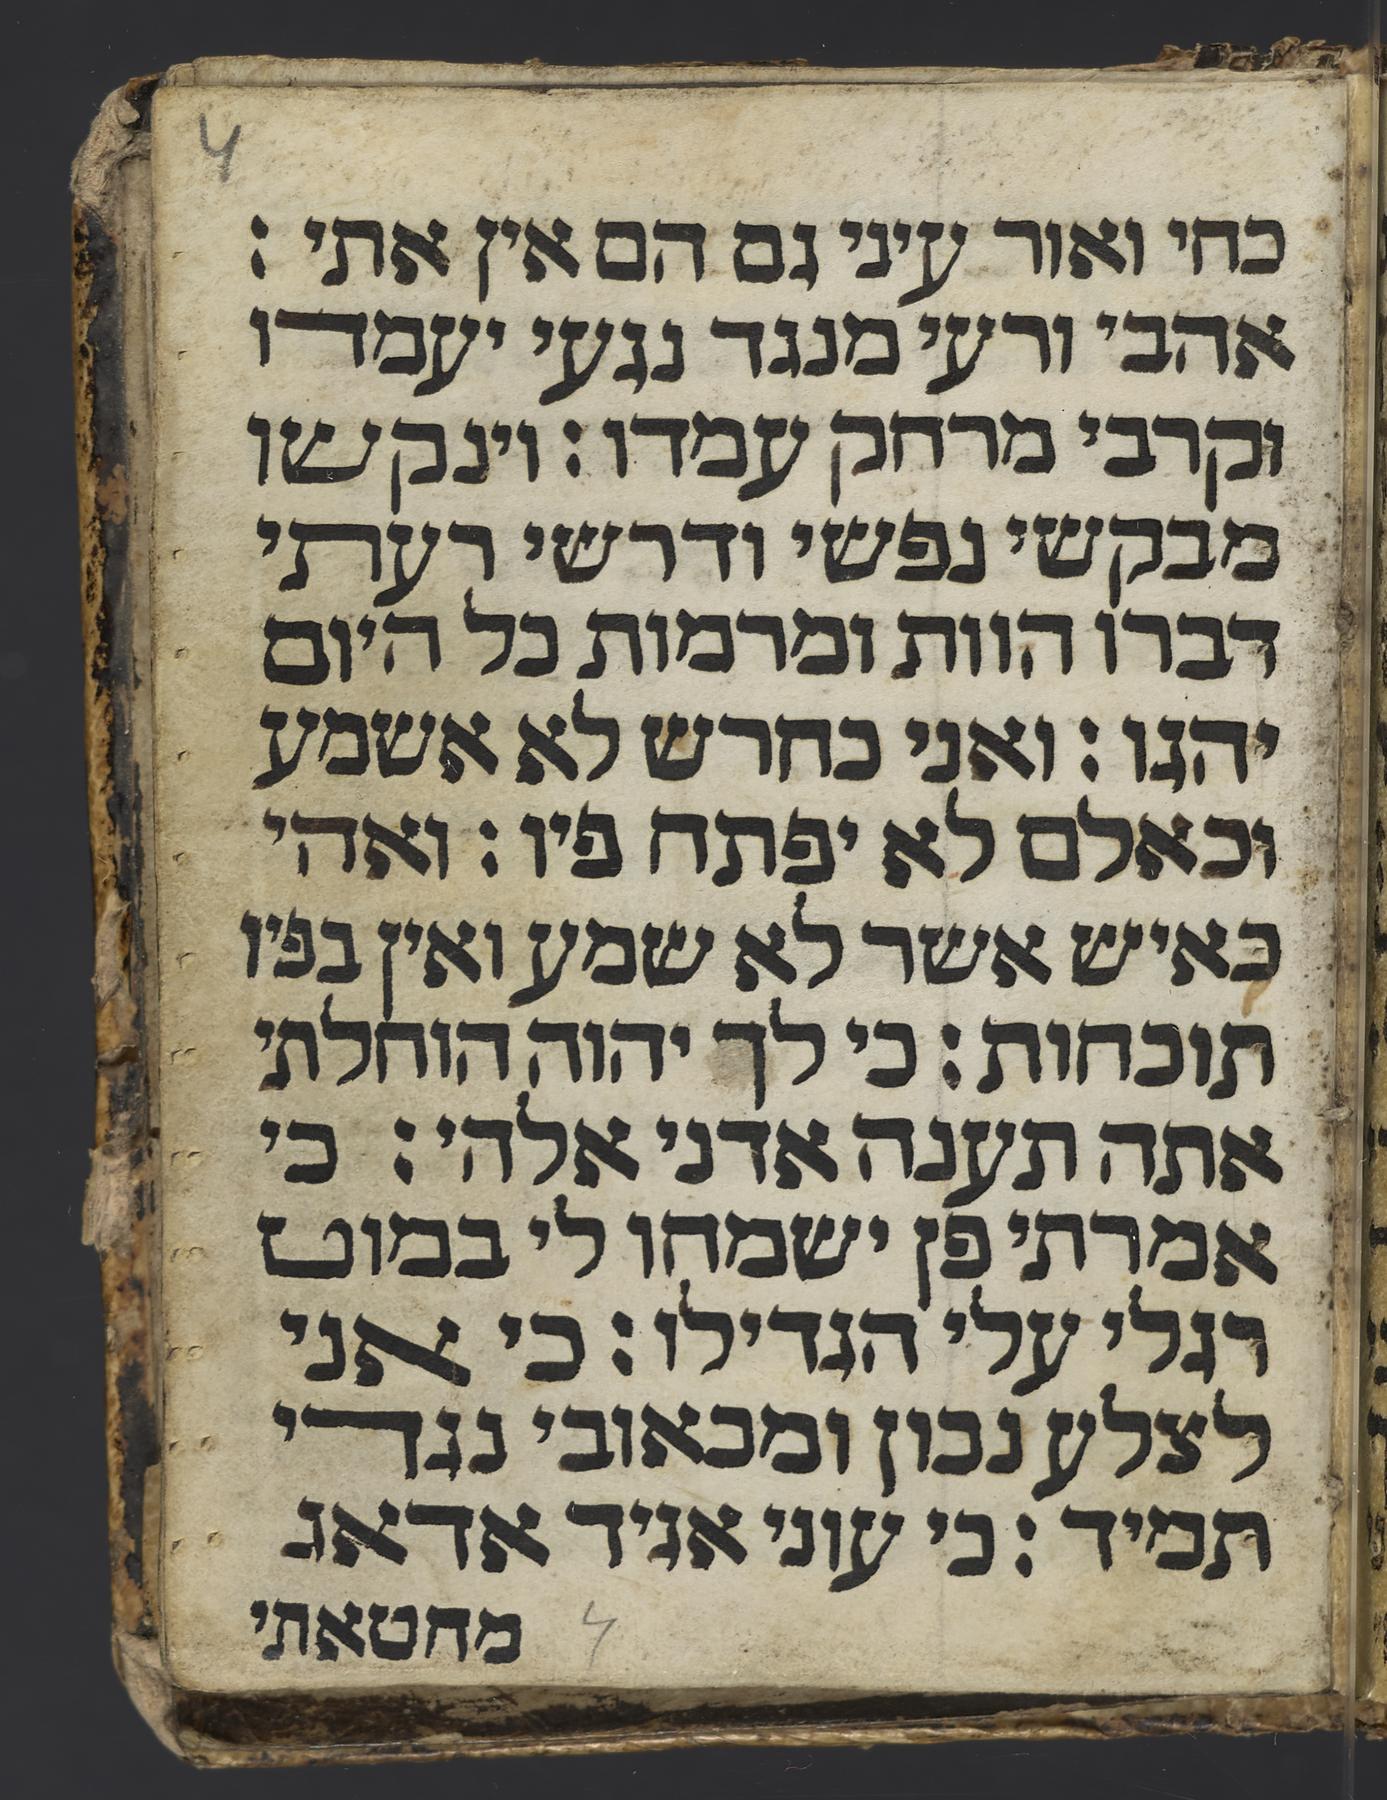 4
כחי ואור עיני גם הם אין אתי :
אהבי ורעי מנגד נגעי יעמדו
וקרבי מרחק עמדו : וינקשו
מבקשי נפשי ודרשי רעתי
דברו הוות ומרמות כל היום
יהגו : ואני כחרש לא אשמע
וכאלם לא יפתח פיו : ואהי
כאיש אשר לא שמע ואין בפיו
תוכחות : כי לך יהוה הוחלתי
אתה תענה אדני אלהי : כי
אמרתי פן ישמחו לי במוט
רגלי עלי הגדילו : כי אני
לצלע נכון ומכאובי נגדי
תמיד : כי עוני אגיד אדאג
מחטאתי 4